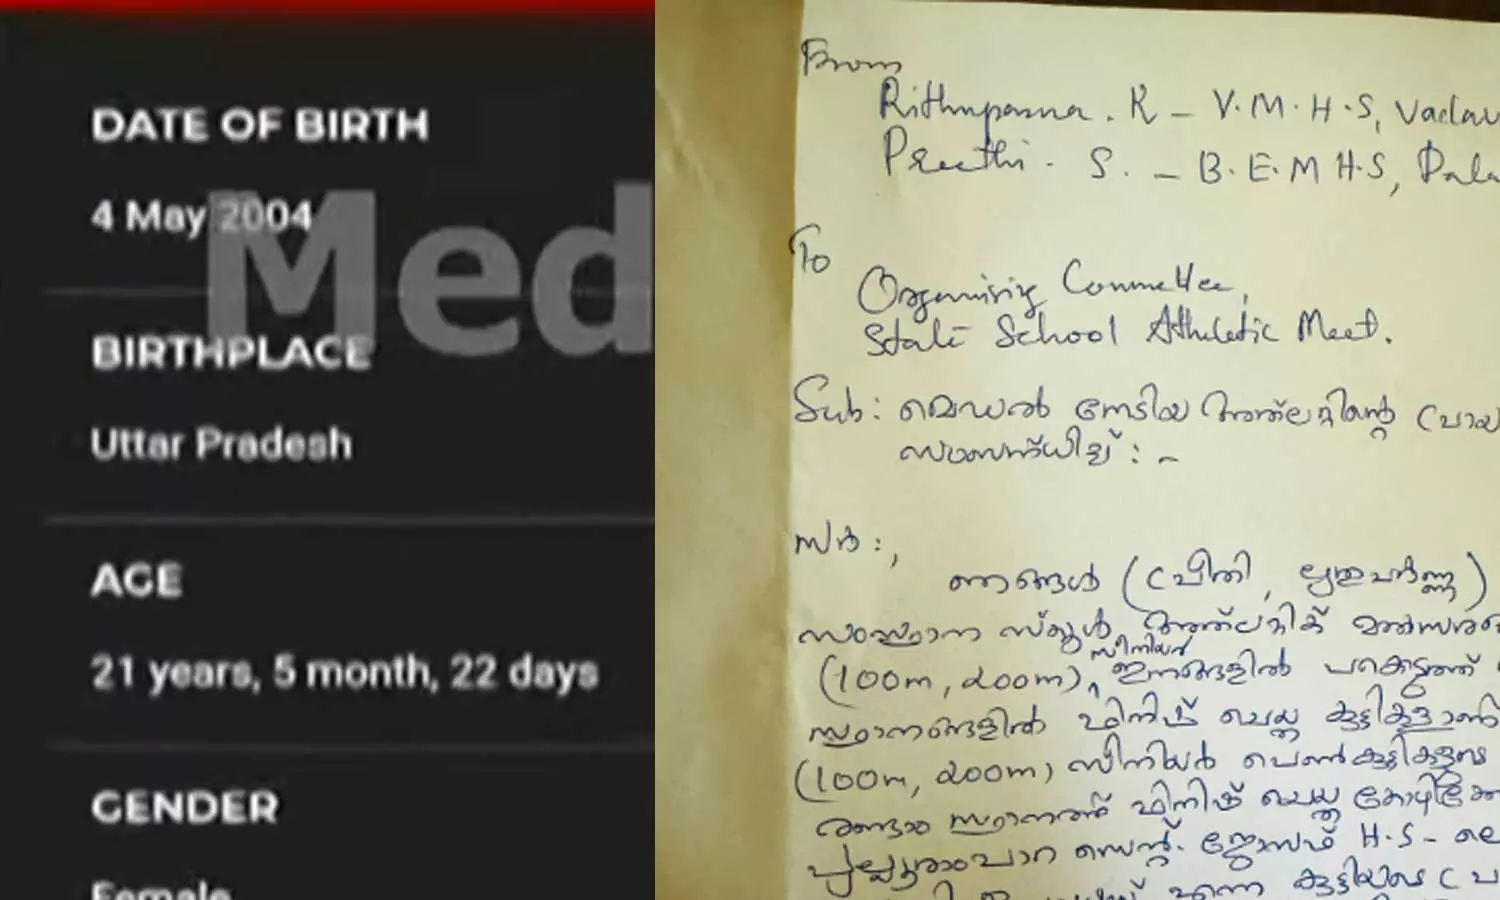 DATE OF BIRTH
4 May 2004
BIRTHPLACE
Uttar Pradesh
AGE
21 years, 5 month, 22 days
GENDER
Female
Med
From
Rithuparna . K - V.M.H.S,
Preethi . S. - B.E.M H.S,
To
Organising Committee,
State School Athletic Meet.
Sub: മെഡൽ നേടിയ അത്‌ലറ്റിന്റെ
സംബന്ധിച്ച് : -
സർ :,
ഞങ്ങൾ (പ്രീതി, ഋതുപർണ്ണ)
സംസ്ഥാന സ്കൂൾ അത്‌ലറ്റിക്
സീനിയർ
(100m, 200m), ഇനങ്ങളിൽ പങ്കെടുത്ത്
സ്ഥാനങ്ങളിൽ ഫിനിഷ് ചെയ്ത
(100m, 200m) സീനിയർ പെൺകുട്ടികളുടെ
രണ്ടാം സ്ഥാനത്ത് ഫിനിഷ് ചെയ്ത
പുല്ലൂരാംപാറ സെന്റ്. ജോസഫ് H.S-
എന്ന കുട്ടിയുടെ